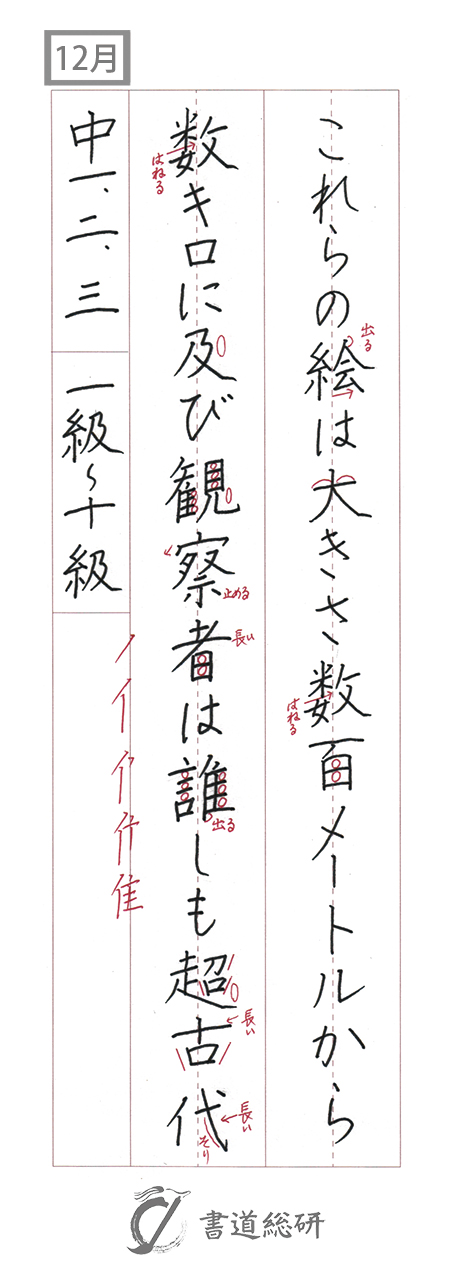 12月
これらの絵は大きさ、数百メートルから
出る
はねる
数キロに及び観察者は誰しも超古代
はねる
止める
長い
出る
長い
長い
そり
中一、二、三
一級〜十級
ノ イ 隹
書道総研